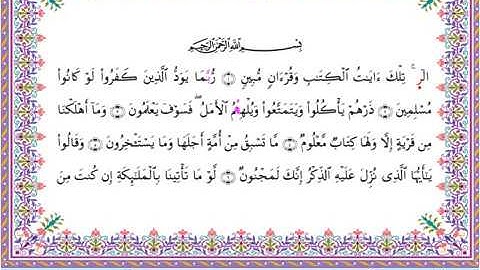 بِسْمِ ٱللَّهِ ٱلرَّحْمَٰنِ ٱلرَّحِيمِ
الٓر ۚ تِلْكَ ءَايَٰتُ ٱلْكِتَٰبِ وَقُرْءَانٍ مُّبِينٍ ۝ رُّبَمَا يَوَدُّ ٱلَّذِينَ كَفَرُوا۟ لَوْ كَانُوا۟
مُسْلِمِينَ ۝ ذَرْهُمْ يَأْكُلُوا۟ وَيَتَمَتَّعُوا۟ وَيُلْهِهِمُ ٱلْأَمَلُ ۖ فَسَوْفَ يَعْلَمُونَ ۝ وَمَآ أَهْلَكْنَا
مِن قَرْيَةٍ إِلَّا وَلَهَا كِتَابٌ مَّعْلُومٌ ۝ مَّا تَسْبِقُ مِنْ أُمَّةٍ أَجَلَهَا وَمَا يَسْتَـْٔخِرُونَ ۝ وَقَالُوا۟
يَٰٓأَيُّهَا ٱلَّذِى نُزِّلَ عَلَيْهِ ٱلذِّكْرُ إِنَّكَ لَمَجْنُونٌ ۝ لَّوْ مَا تَأْتِينَا بِٱلْمَلَٰٓئِكَةِ إِن كُنتَ مِنَ